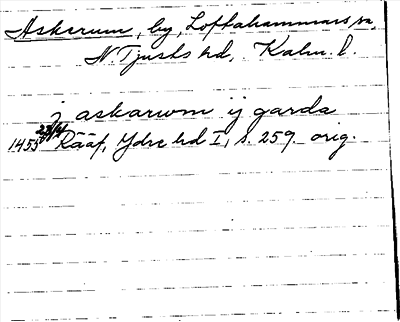 Askerum, by, Loftahammars sn,
N. Tjusts hd, Kalm. l.
j askarwm ij garda
1455 23/4 Rääf, Ydre hd I, s. 259. orig.